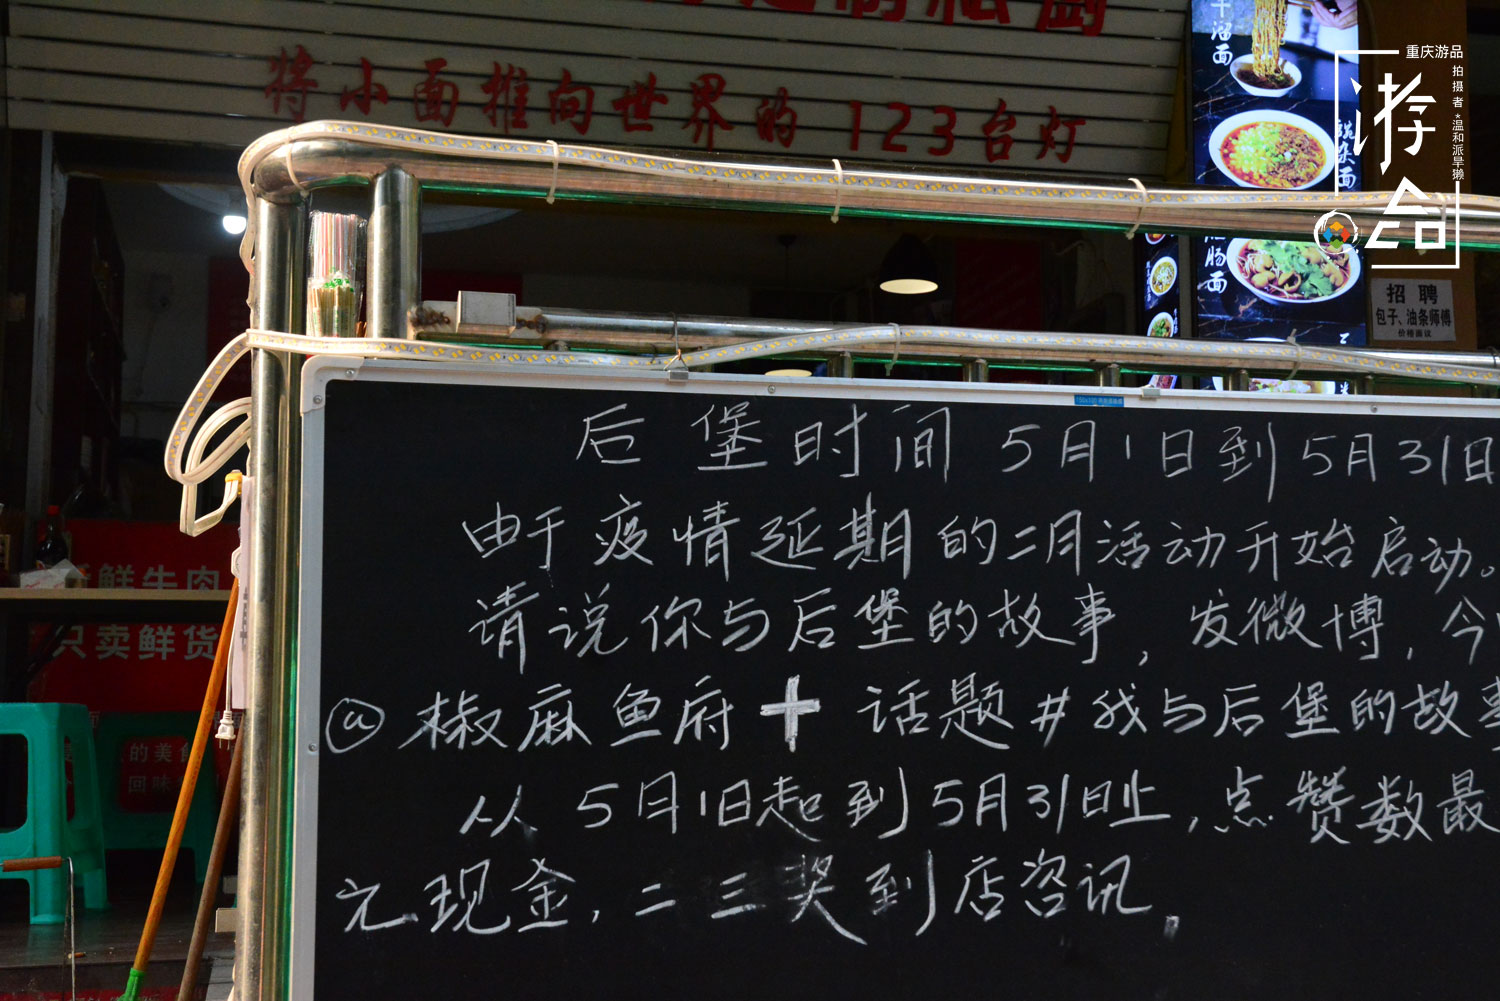 将小面推向世界的 123台灯
重庆游品
拍摄者*温和派旱獭
游名
干溜面
豌杂面
肥肠面
招聘
包子、油条师傅
价格面议
后堡时间 5月1日到5月31日
由于疫情延期的二月活动开始启动。
请说你与后堡的故事，发微博，今
@椒麻鱼府+话题#我与后堡的故事
从5月1日起到5月31日止，点赞数最
元现金，二三奖到店咨讯，
鲜牛肉
只卖鲜货
的美食
回味